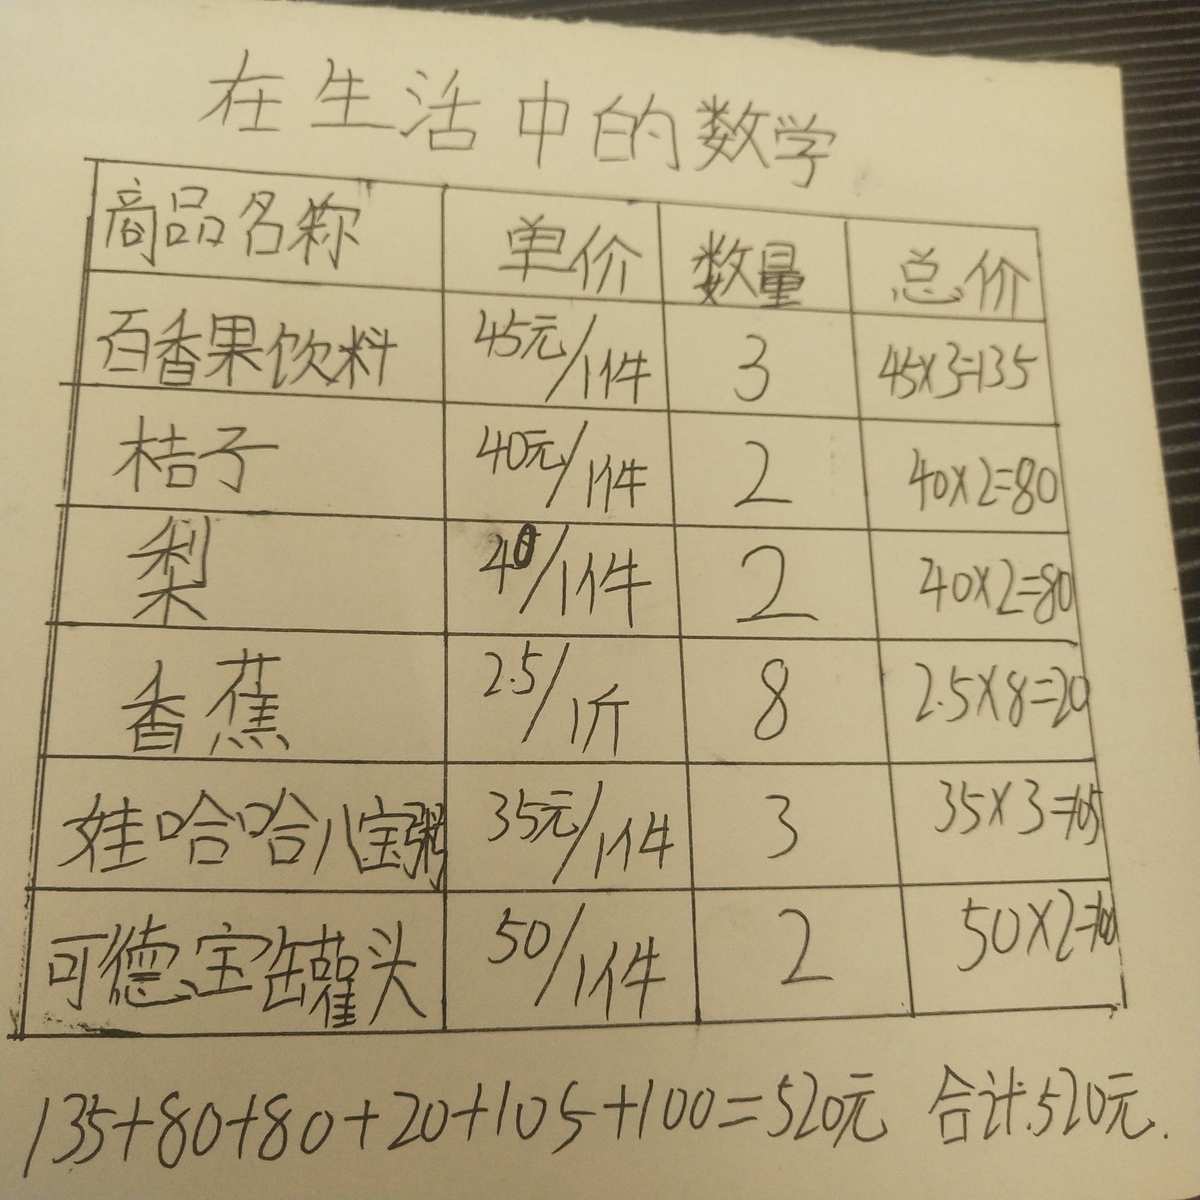 在生活中的数学
商品名称 单价 数量 总价
百香果饮料 45元/1件 3 45×3=135
桔子 40元/1件 2 40×2=80
梨 40/1件 2 40×2=80
香蕉 2.5/1斤 8 2.5×8=20
娃哈哈八宝粥 35元/1件 3 35×3=105
可德宝罐头 50/1件 2 50×2=100
135+80+80+20+105+100=520元 合计.520元.